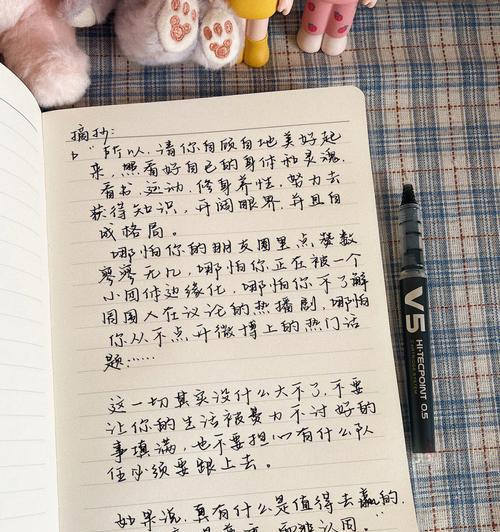 摘抄:
"所以,请你自顾自地美好起
来,照看好自己的身体和灵魂.
看书、运动、修身养性,努力去
获得知识,开阔眼界,并且自
成格局。
哪怕你的朋友圈里点赞数
寥寥无几,哪怕你正在被一个
小团体边缘化,哪怕你不了解
周围人在议论的热播剧,哪怕
你从不点开微博上的热门话
题……
这一切其实没什么大不了,不要
让你的生活被费力不讨好的
事填满,也不要担心有什么队
伍必须要跟上去。
如果说,真有什么是值得去赢的,
V5
HI-TECPOINT 0.5